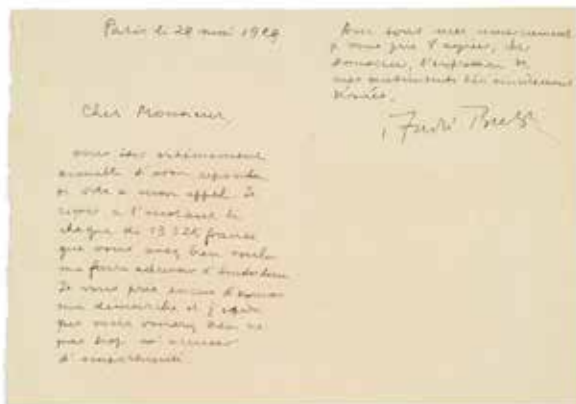 Paris le 28 mai 1929
Cher Monsieur
vous êtes extrêmement
aimable d'avoir répondu
si vite à mon appel. Je
reçois à l'instant le
chèque de 13 325 francs
que vous avez bien voulu
me faire adresser d'Amsterdam.
Je vous prie encore d'excuser
ma démarche et j'espère
que vous voudrez bien ne
pas trop m'accuser
d'importunité
Avec tous mes remerciements
je vous prie d'agréer, cher
Monsieur, l'expression de
mes sentiments très sincèrement
dévoués.
André Breton